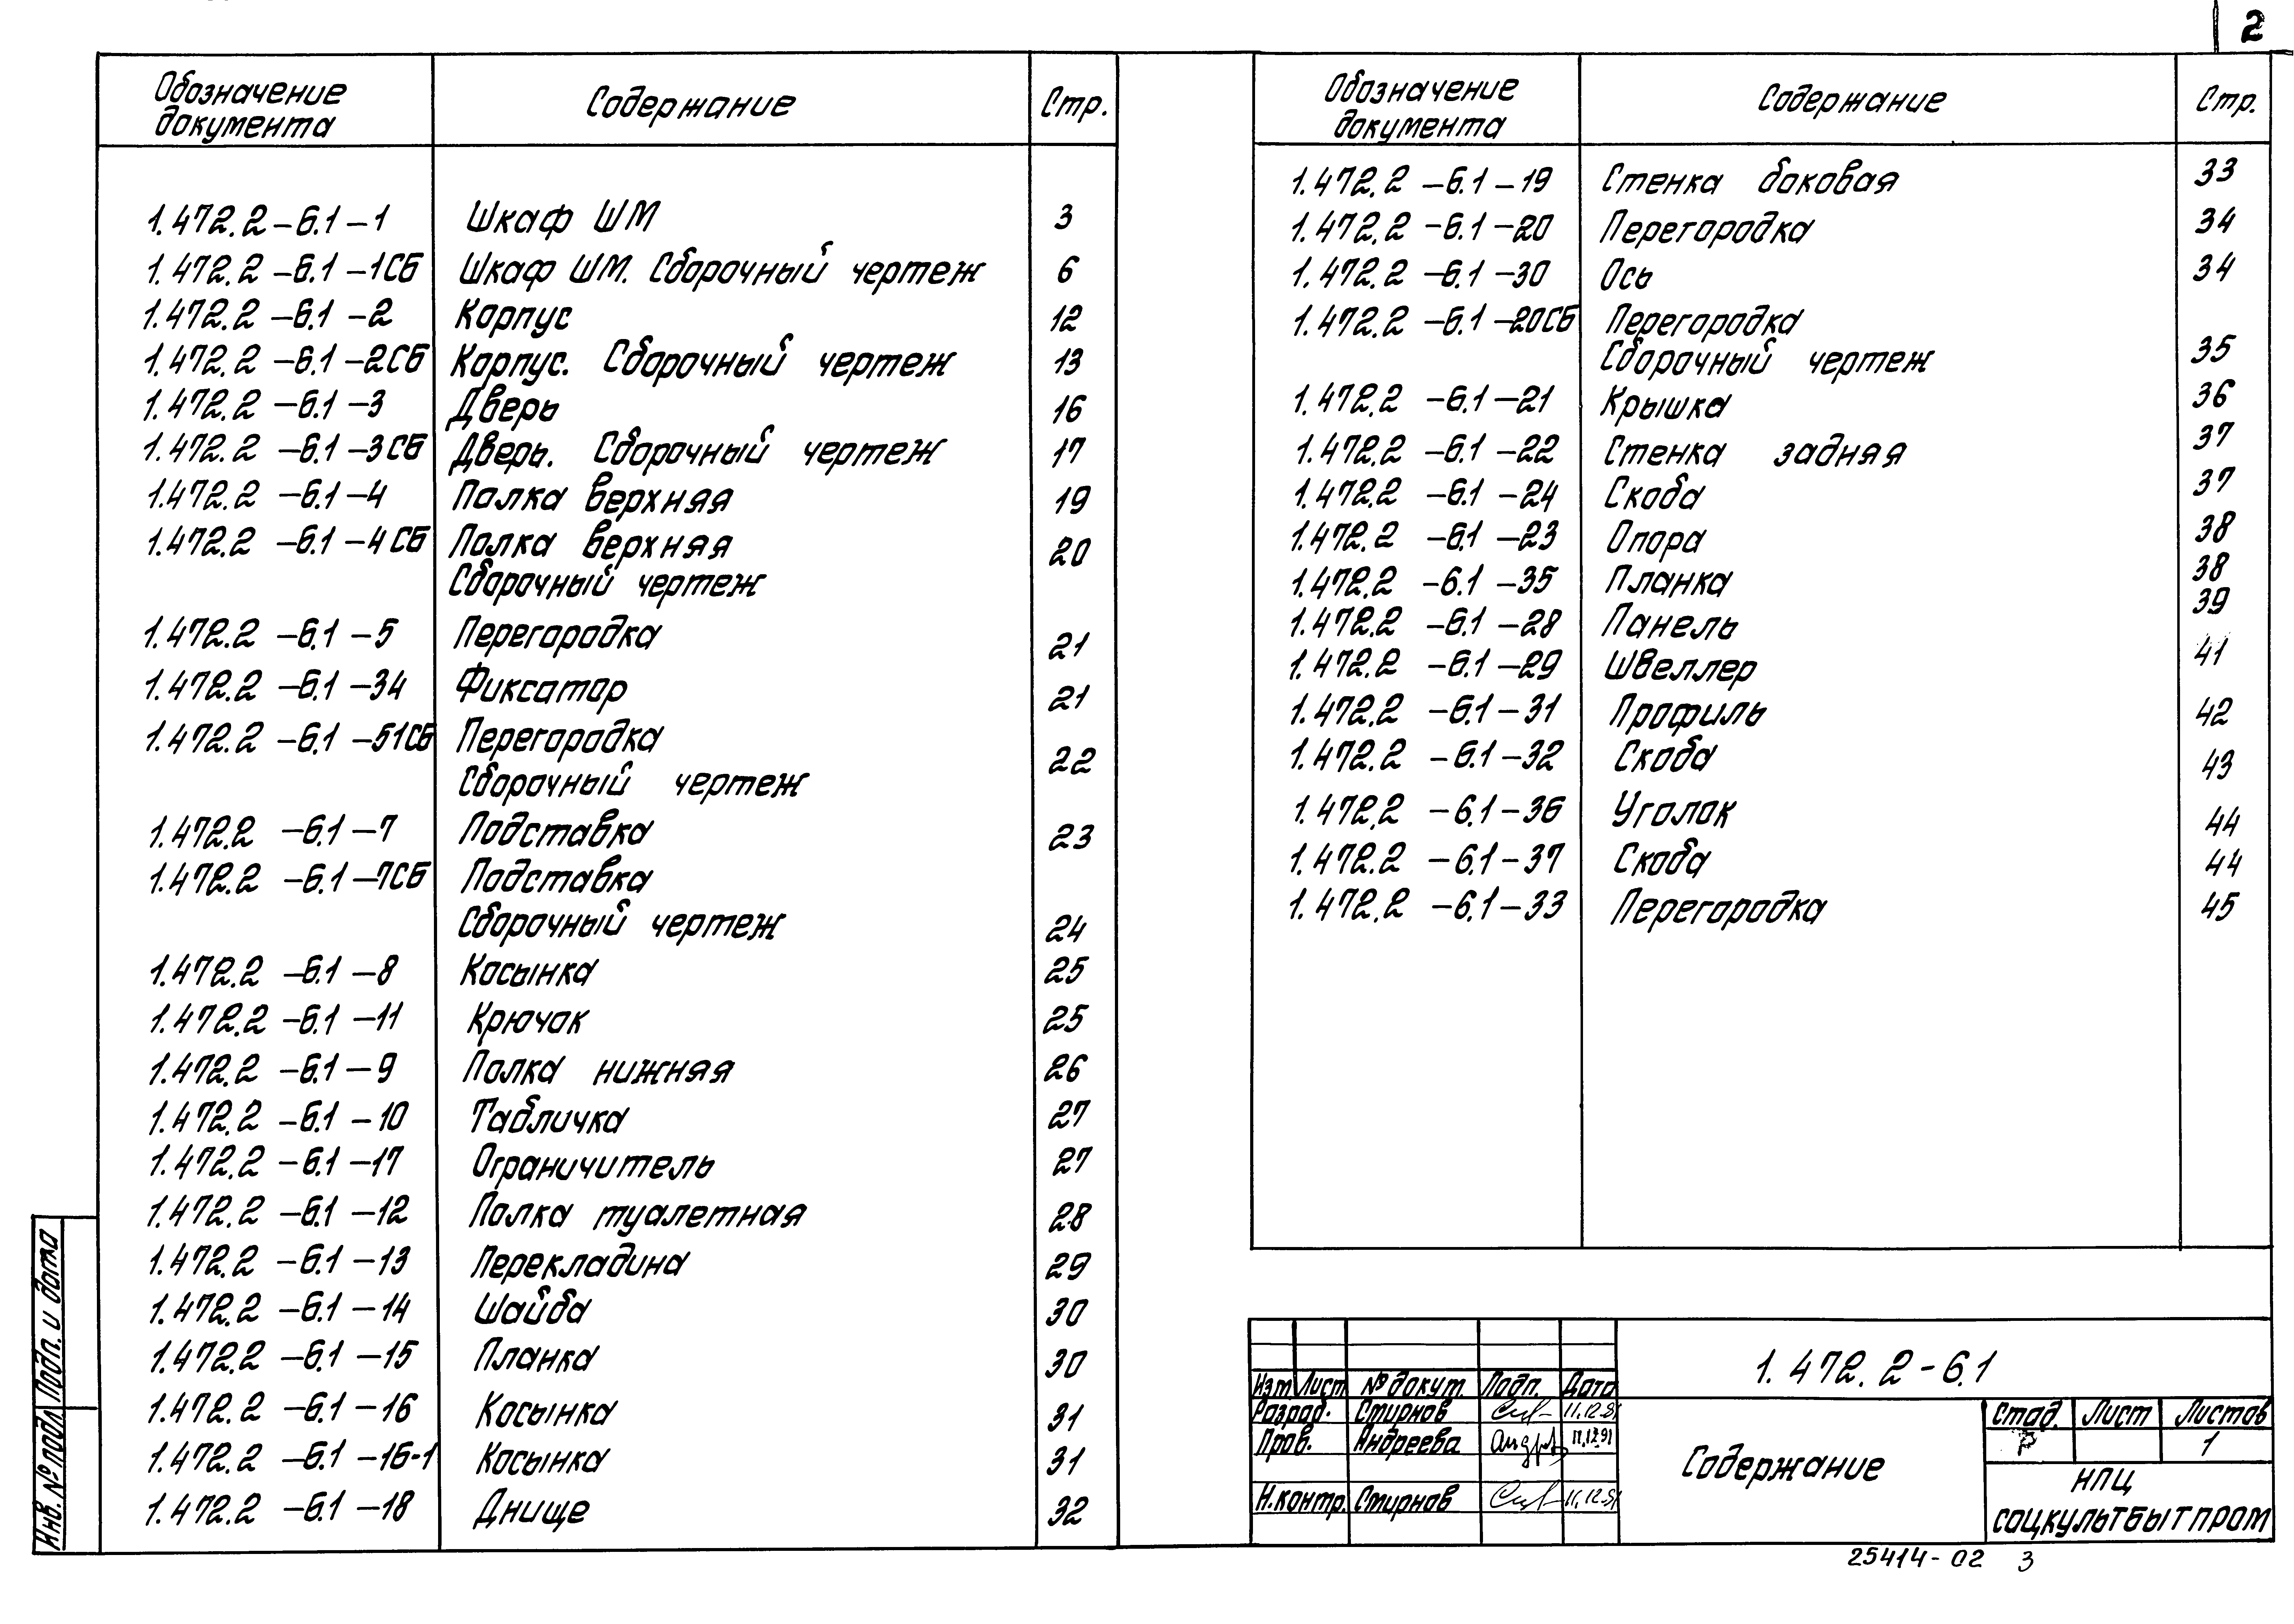 2
Обозначение документа Содержание Стр.
1.472.2-6.1-1 Шкаф ШМ 3
1.472.2-6.1-1СБ Шкаф ШМ. Сборочный чертеж 6
1.472.2-6.1-2 Корпус 12
1.472.2-6.1-2СБ Корпус. Сборочный чертеж 13
1.472.2-6.1-3 Дверь 16
1.472.2-6.1-3СБ Дверь. Сборочный чертеж 17
1.472.2-6.1-4 Полка верхняя 19
1.472.2-6.1-4СБ Полка верхняя 20
Сборочный чертеж
1.472.2-6.1-5 Перегородка 21
1.472.2-6.1-34 Фиксатор 21
1.472.2-6.1-51СБ Перегородка
Сборочный чертеж 22
1.472.2-6.1-7 Подставка 23
1.472.2-6.1-7СБ Подставка
Сборочный чертеж 24
1.472.2-6.1-8 Косынка 25
1.472.2-6.1-11 Крючок 25
1.472.2-6.1-9 Полка нижняя 26
1.472.2-6.1-10 Табличка 27
1.472.2-6.1-17 Ограничитель 27
1.472.2-6.1-12 Полка туалетная 28
1.472.2-6.1-13 Перекладина 29
1.472.2-6.1-14 Шайба 30
1.472.2-6.1-15 Планка 30
1.472.2-6.1-16 Косынка 31
1.472.2-6.1-16-1 Косынка 31
1.472.2-6.1-18 Днище 32
Обозначение документа Содержание Стр.
1.472.2-6.1-19 Стенка боковая 33
1.472.2-6.1-20 Перегородка 34
1.472.2-6.1-30 Ось 34
1.472.2-6.1-20СБ Перегородка
Сборочный чертеж 35
1.472.2-6.1-21 Крышка 36
1.472.2-6.1-22 Стенка задняя 37
1.472.2-6.1-24 Скоба 37
1.472.2-6.1-23 Опора 38
1.472.2-6.1-35 Планка 38
1.472.2-6.1-28 Панель 39
1.472.2-6.1-29 Швеллер 41
1.472.2-6.1-31 Профиль 42
1.472.2-6.1-32 Скоба 43
1.472.2-6.1-36 Уголок 44
1.472.2-6.1-37 Скоба 44
1.472.2-6.1-33 Перегородка 45
Инв. № подл Подп. и дата
1.472.2-6.1
Изм Лист № докум. Подп. Дата
Разраб. Смирнов 11.12.91
Пров. Андреева 11.12.91
Н.контр. Смирнов 11.12.91
Содержание
Стад. Лист Листов
Р 1
НПЦ
СОЦКУЛЬТБЫТПРОМ
25414-02 3